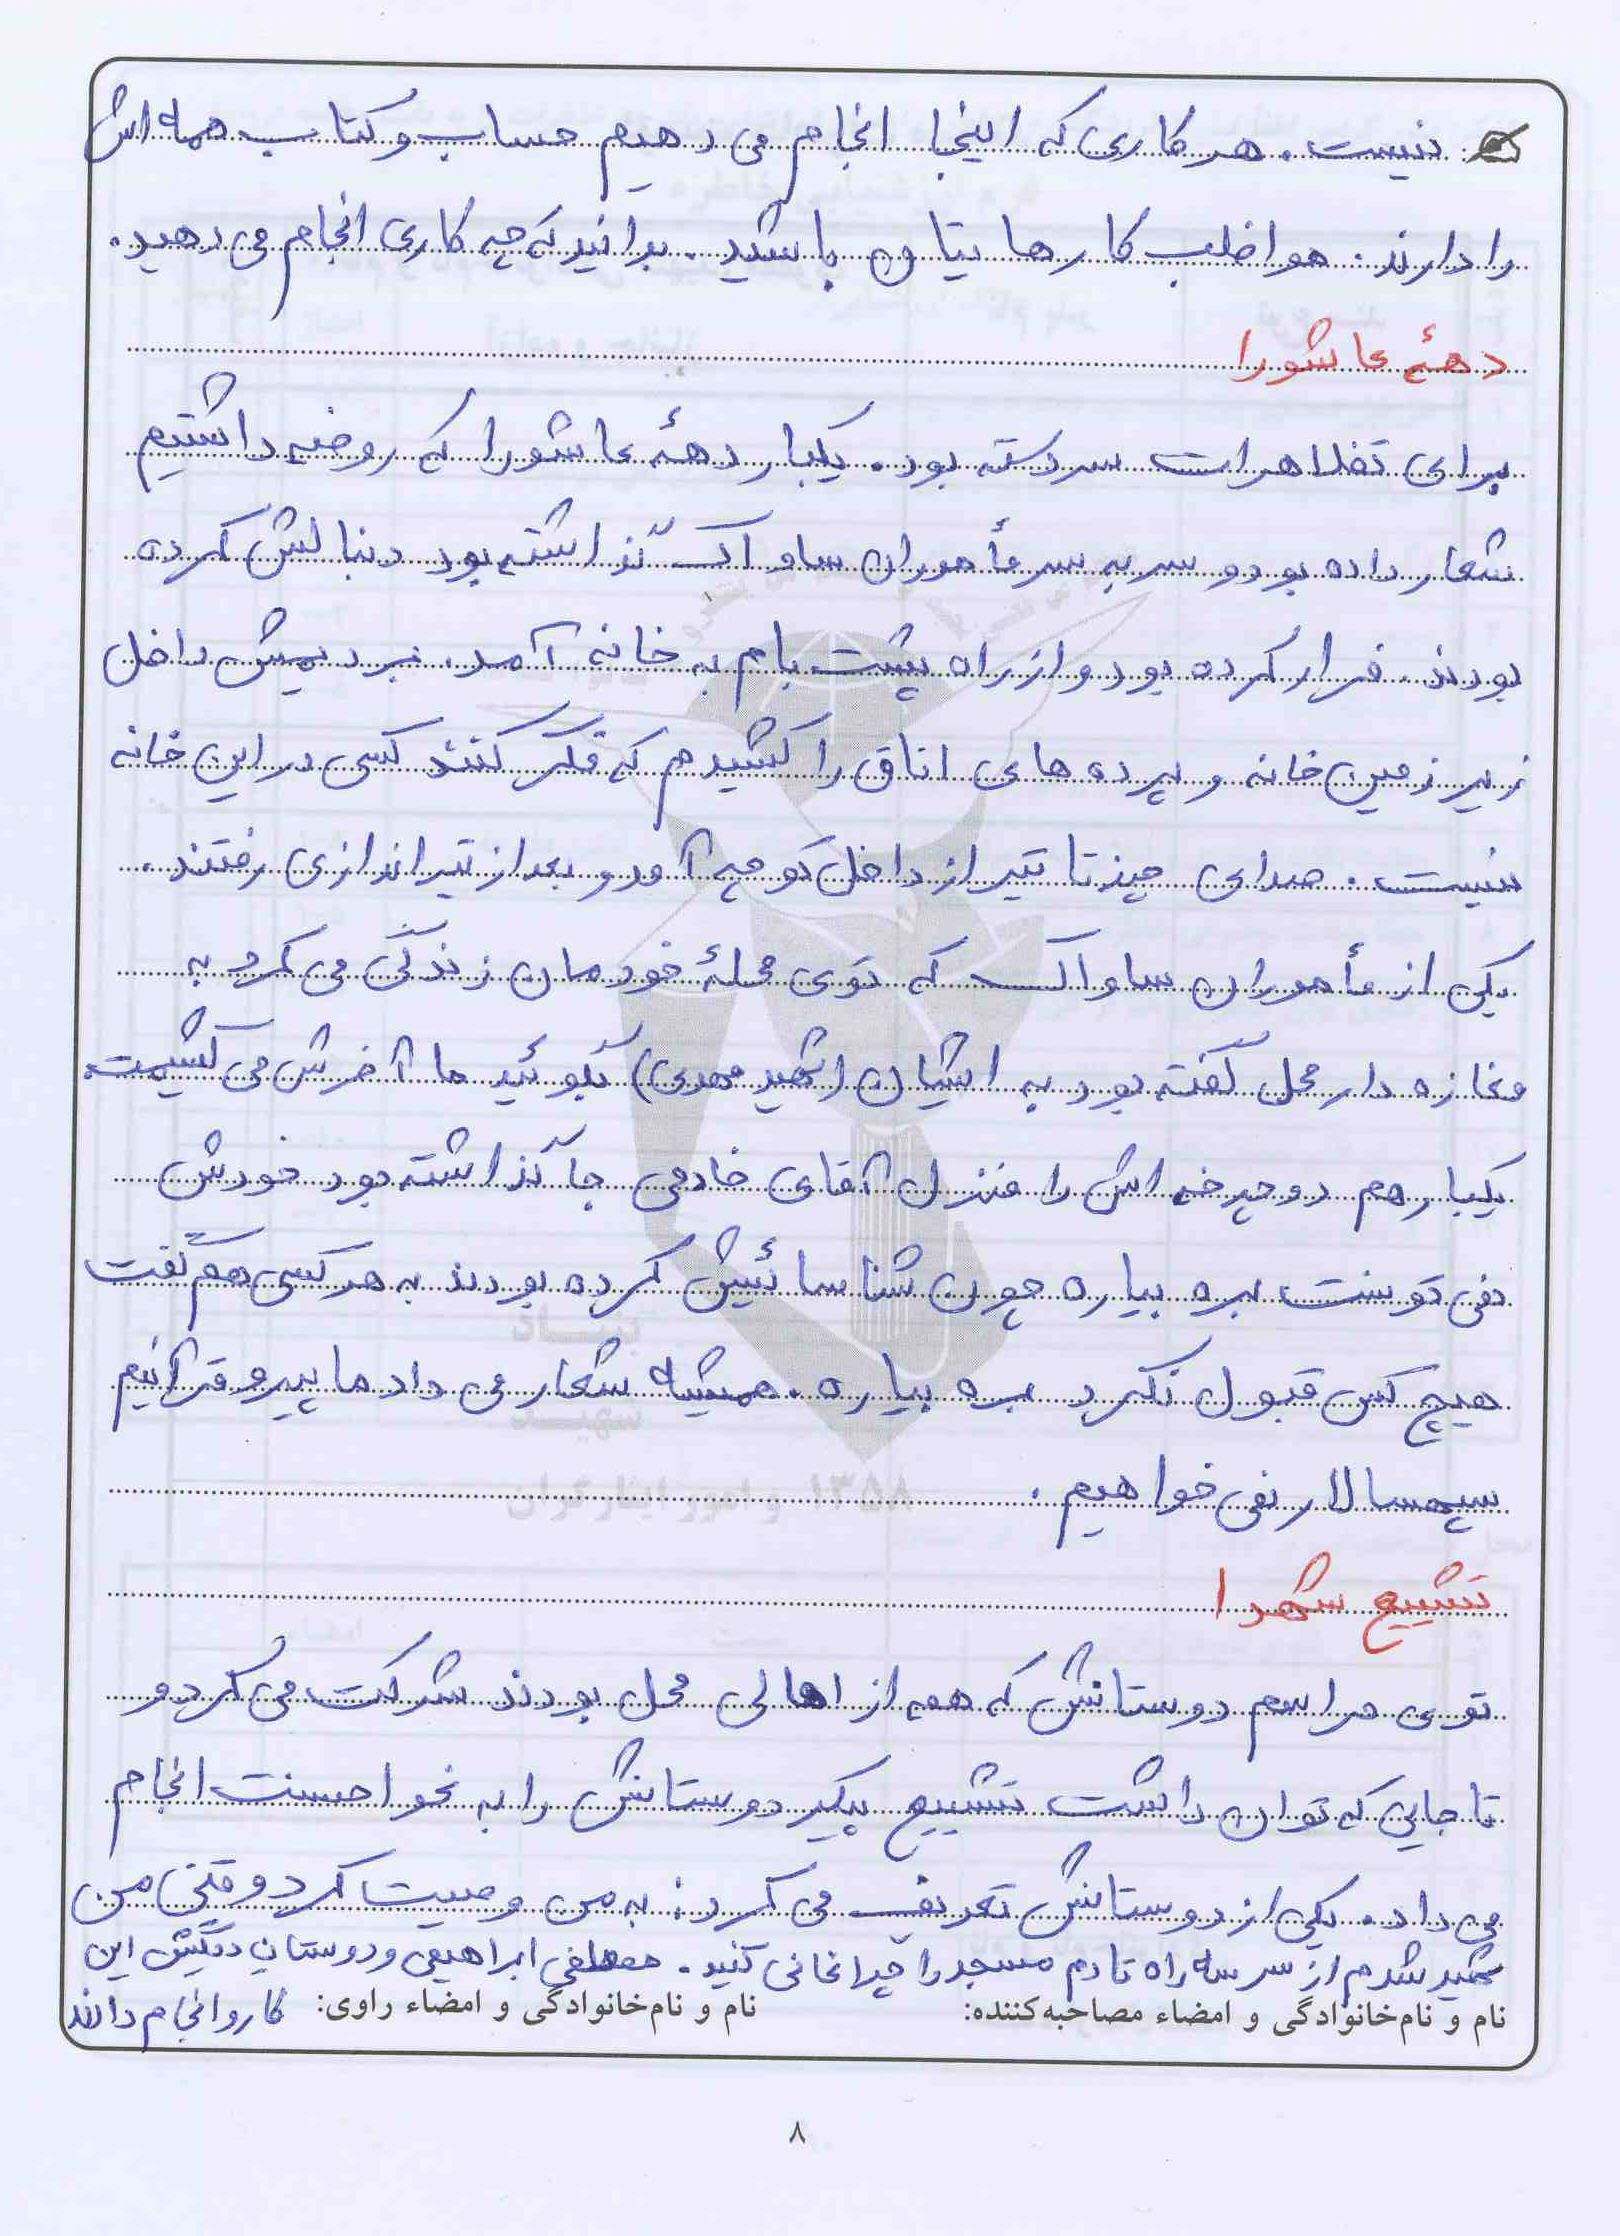 نیست. هر کاری که اینجا انجام می دهیم حساب و کتاب همه اش
را دارند. مواظب کارها یتان باشید. بدانید که چه کاری انجام می دهید.
دههٔ عاشورا
برای تظاهرات سردسته بود. یکبار دههٔ عاشورا که روضه داشتیم
شعار داده بود و سر به سر مأموران ساواک گذاشته بود دنبالش کرده
بودند. فرار کرده بود و از راه پشت بام به خانه آمد. بردیمش داخل
زیر زمین خانه و پرده های اتاق را کشیدم که فکر کنند کسی در این خانه
نیست. صدای چند تا تیر از داخل کوچه آمد و بعد از تیراندازی رفتند.
یکی از مأموران ساواک که توی محلهٔ خودمان زندگی می کرد به
مغازه دار محل گفته بود به ایشان (شهید مهدی) بگوئید ما آخرش می کشیمت.
یکبار هم دوچرخه اش را منزل آقای خادمی جا گذاشته بود خودش
نمی تونست بره بیاره چون شناسائیش کرده بودند به هر کسی هم گفت
هیچ کس قبول نکرد بره بیاره. همیشه شعار می داد ما پیرو قرآنیم
سپهسالار نمی خواهیم.
تشییع شهدا
توی مراسم دوستانش که همه از اهالی محل بودند شرکت می کرد و
تا جایی که توان داشت تشییع پیکر دوستانش را به نحو احسنت انجام
می داد. یکی از دوستانش تعریف می کرد: به من وصیت کرد وقتی من
شهید شدم از سر سه راه تا دم مسجد را چراغانی کنید. مصطفی ابراهیمی و دوستان دیگش این
کارو انجام دادند
نام و نام‌خانوادگی و امضاء مصاحبه‌کننده: نام و نام‌خانوادگی و امضاء راوی:
۸